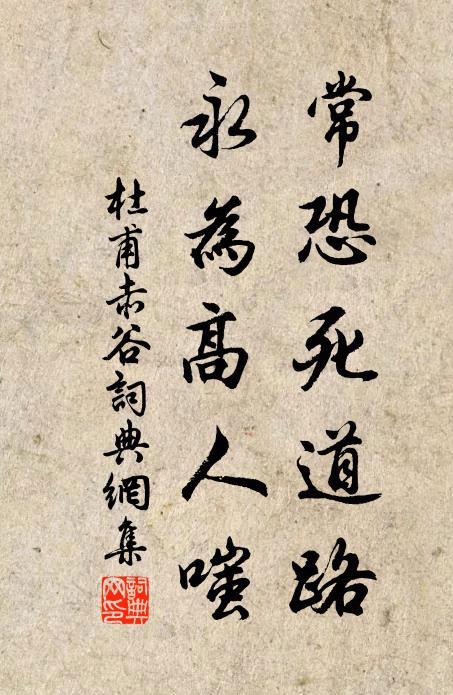 常恐死道路
永為高人嗤
杜甫赤谷詞典網集
詞典网印